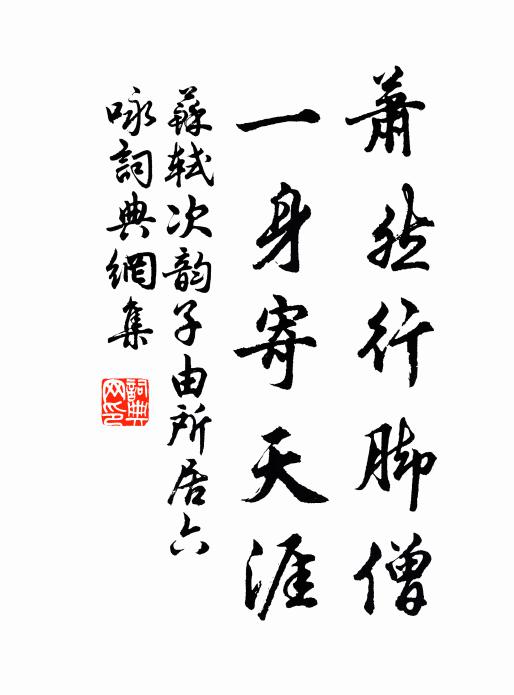 蕭然行脚僧
一身寄天涯
蘇軾次韵子由所居六
咏詞典網集
詞典
网印